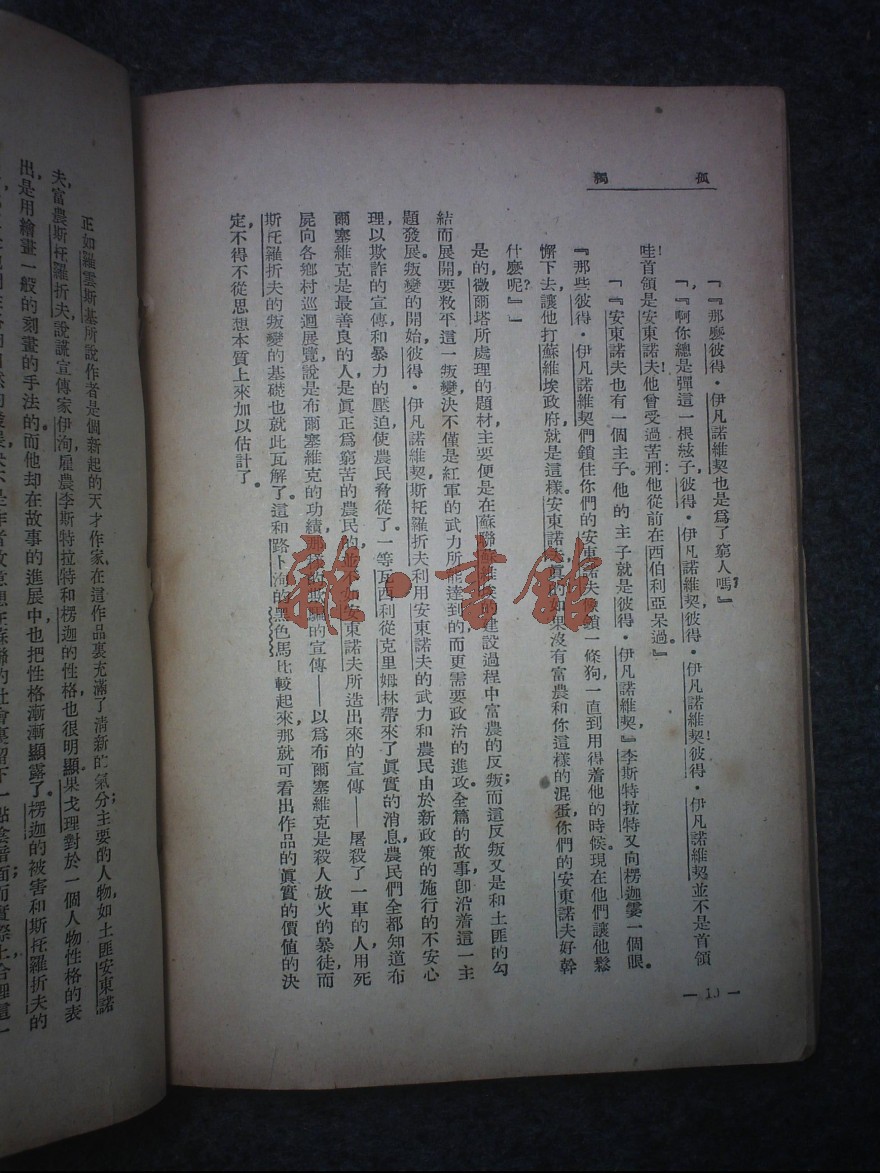 孤獨
「『那麼彼得·伊凡諾維契也是爲了窮人嗎？』
「『啊，你總是彈這一根絃子，彼得·伊凡諾維契！彼得·伊凡諾維契！彼得·伊凡諾維契並不是首領
哇！首領是安東諾夫！他曾受過苦刑，他從前在西伯利亞呆過。』
「『安東諾夫也有一個主子。他的主子就是彼得·伊凡諾維契。』李斯特拉特又向楞迦霎一個眼。
『那些彼得·伊凡諾維契們鎖住你們的安東諾夫 鎖一條狗，一直到用得着他的時候。現在他們讓他鬆
懈下去，讓他打蘇維埃政府，就是這樣。安東諾夫 的如果沒有富農和你這樣的混蛋，你們的安東諾夫好幹
什麼呢？』」
是的，微爾塔所處理的題材主要便是在蘇聯 的建設過程中富農的反叛；而這反叛又是和土匪的勾
結而展開，要敉平這一叛變，決不僅是紅軍的武力所能達到的，而更需要政治的進攻，全篇的故事卽沿着這一主
題發展。叛變的開始，彼得·伊凡諾維契斯托羅折夫利用安東諾夫的武力和農民由於新政策的施行的不安心
理，以欺詐的宣傳和暴力的壓迫使農民脅從了。一等瓦西利從克里姆林帶來了眞實的消息，農民們全都知道布
爾塞維克是最善良的人，是眞正爲窮苦的農民的， 安東諾夫所造出來的宣傳——屠殺了一車的人，用死
屍向各鄉村巡迴展覽，說是布爾塞維克的功績，那樣的欺騙的宣傳——以爲布爾塞維克是殺人放火的暴徒，而
斯托羅折夫的叛變的基礎也就此瓦解了。這和路卜洵的黑色馬比較起來，那就可看出作品的眞實的價值的決
定不得不從思想本質上來加以估計了。
正如羅雲斯基所說，作者是個新起的天才作家，在這作品裏充滿了清新的氣分；主要的人物，如土匪安東諾
夫，富農斯托羅折夫，說謊宣傳家伊洵，雇農李斯特拉特和楞迦的性格也很明顯。果戈理對於一個人物性格的表
出是用繪畫一般的刻畫的手法的，而他却在故事的進展中也把性格漸漸顯露了。楞迦的被害和斯托羅折夫的
雜·書館